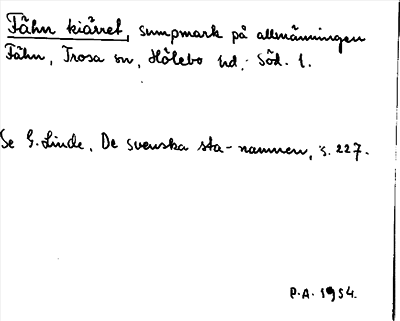 Fåhn kiärret, sumpmark på allmänningen
Fåhn, Trosa sn, Hölebo hd, Söd. l.
Se G. Linde, De svenska sta-namnen, s. 227.
P.A. 1954.